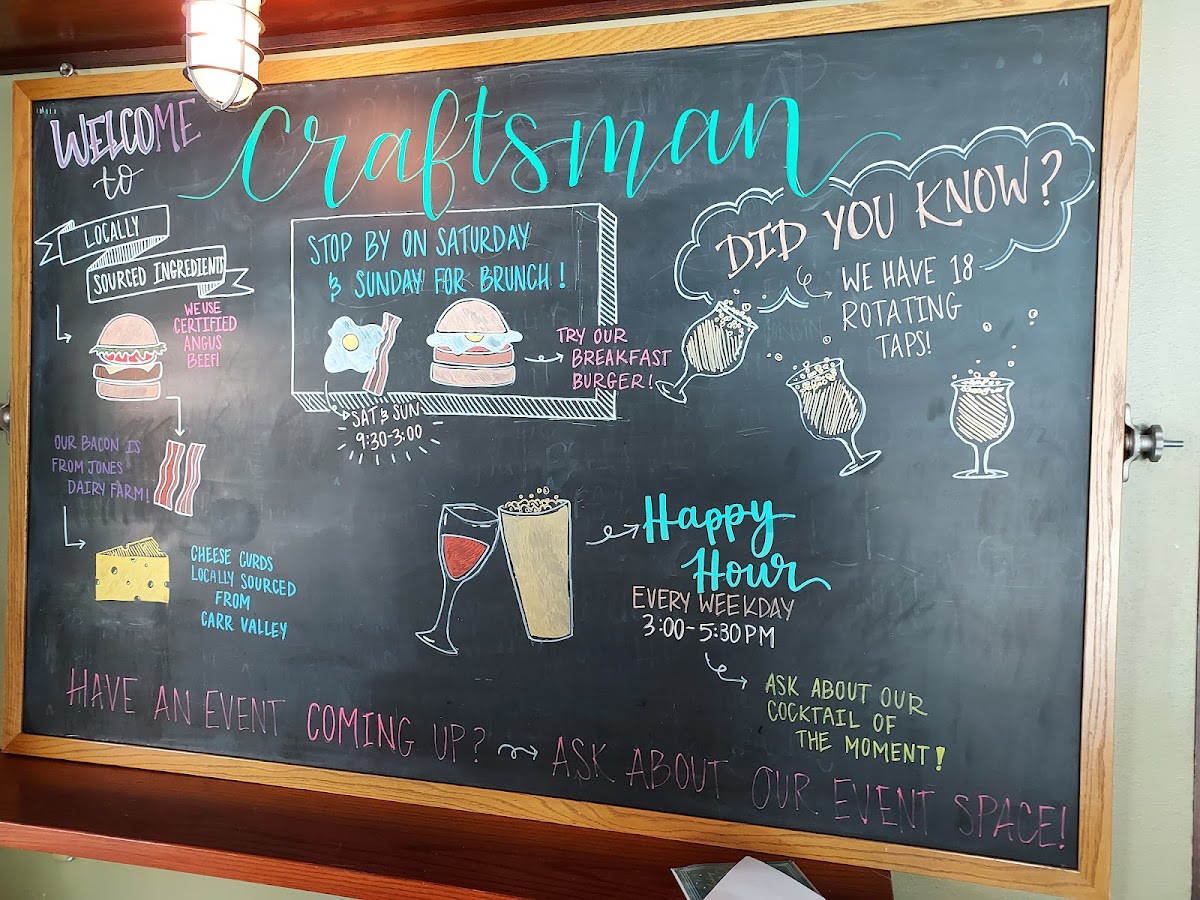 WELCOME
to
Craftsman
LOCALLY
SOURCED INGREDIENTS
WE USE
CERTIFIED
ANGUS
BEEF!
OUR BACON IS
FROM JONES
DAIRY FARM!
CHEESE CURDS
LOCALLY SOURCED
FROM
CARR VALLEY
STOP BY ON SATURDAY
& SUNDAY FOR BRUNCH!
TRY OUR
BREAKFAST
BURGER!
SAT & SUN
9:30-3:00
DID YOU KNOW?
WE HAVE 18
ROTATING
TAPS!
Happy
Hour
EVERY WEEKDAY
3:00-5:30PM
ASK ABOUT OUR
COCKTAIL OF
THE MOMENT!
HAVE AN EVENT COMING UP? ASK ABOUT OUR EVENT SPACE!